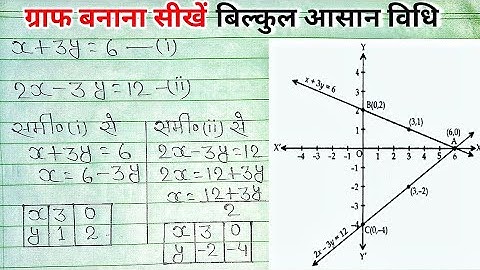 ग्राफ बनाना सीखें बिल्कुल आसान विधि
x+3y=6—(i)
2x-3y=12-(ii)
समी०(i) से
x+3y=6
x=6-3y
x 3 0
y 1 2
समी०(ii) से
2x-3y=12
2x=12+3y
x=12+3y
2
x 3 0
y -2 -4
Y
4
3
x + 3y = 6
2
B(0,2)
1
(3,1)
(6,0)
A
X'
-3 -2 -1 O 1 2 3 4 5 6
X
-1
-2
(3,-2)
-3
-4
C(0,-4)
2x - 3y = 12
Y'